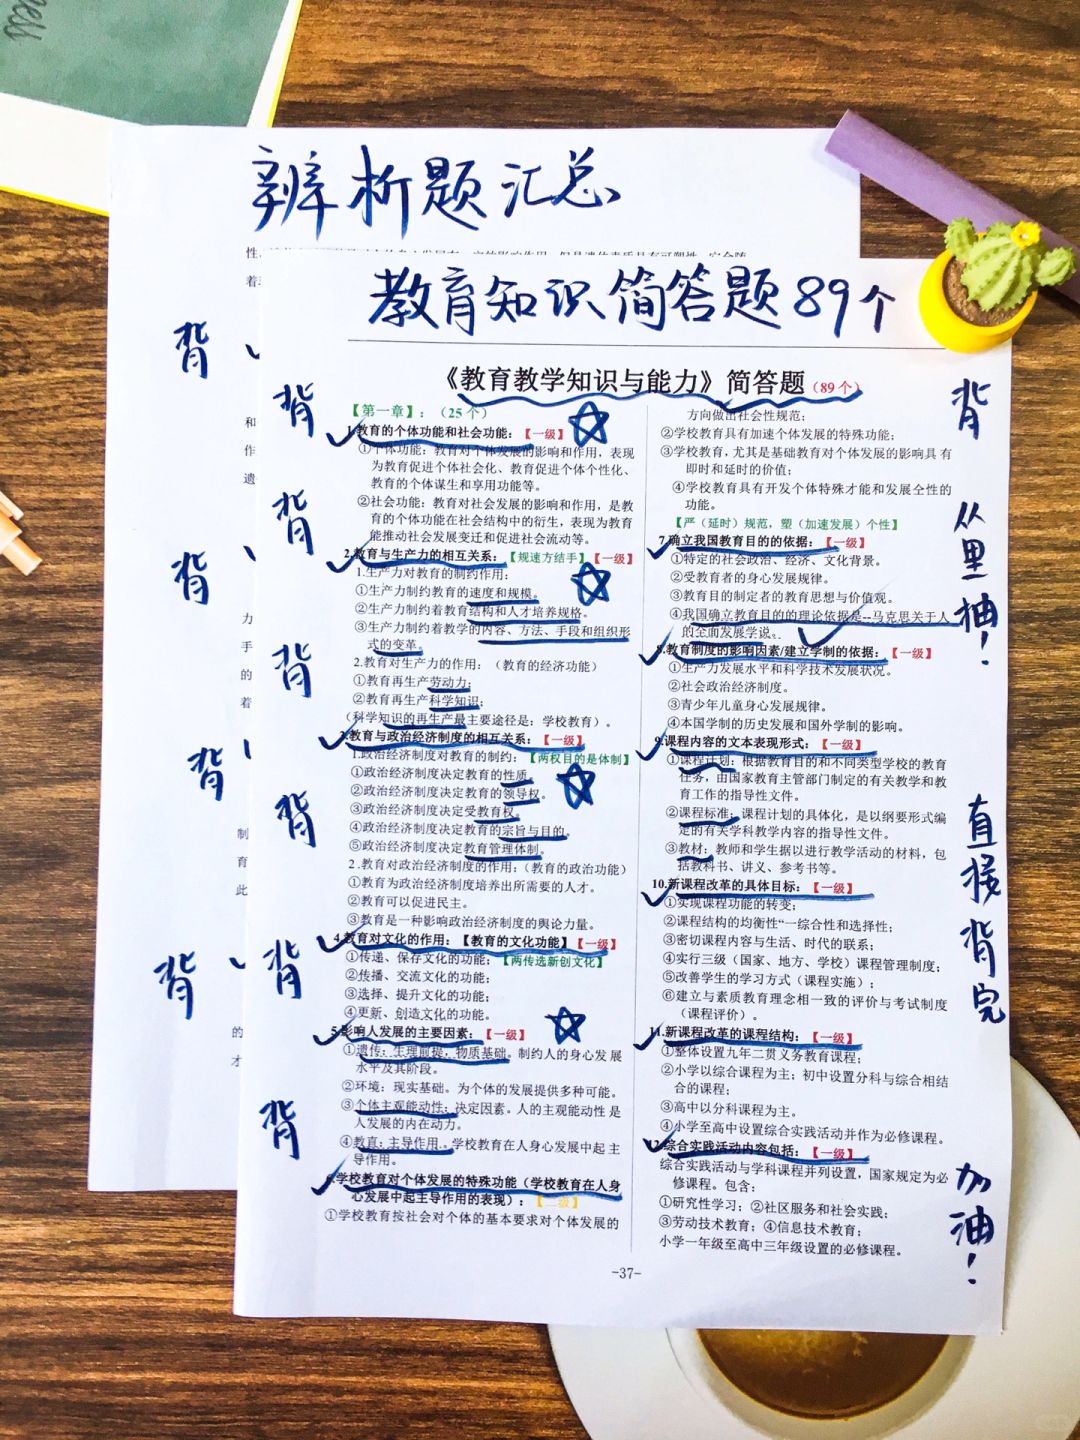 辨析题汇总
教育知识简答题89个
《教育教学知识与能力》简答题（89个）
背
背
背
背
背
背
背
背
背
背
背
和
作
遗
力
手
的
着
制
育
此
的
才
【第一章】：（25个）
1.教育的个体功能和社会功能：【一级】
①个体功能：教育对个体发展的影响和作用，表现
为教育促进个体社会化、教育促进个体个性化、
教育的个体谋生和享用功能等。
②社会功能：教育对社会发展的影响和作用，是教
育的个体功能在社会结构中的衍生，表现为教育
能推动社会发展变迁和促进社会流动等。
2.教育与生产力的相互关系：【规速方结手】【一级】
1.生产力对教育的制约作用：
①生产力制约教育的速度和规模。
②生产力制约着教育结构和人才培养规格。
③生产力制约着教学的内容、方法、手段和组织形
式的变革。
2.教育对生产力的作用：（教育的经济功能）
①教育再生产劳动力；
②教育再生产科学知识；
（科学知识的再生产最主要途径是：学校教育）。
3.教育与政治经济制度的相互关系：【一级】
1.政治经济制度对教育的制约：【两权目的是体制】
①政治经济制度决定教育的性质。
②政治经济制度决定教育的领导权。
③政治经济制度决定受教育权。
④政治经济制度决定教育的宗旨与目的。
⑤政治经济制度决定教育管理体制。
2.教育对政治经济制度的作用：（教育的政治功能）
①教育为政治经济制度培养出所需要的人才。
②教育可以促进民主。
③教育是一种影响政治经济制度的舆论力量。
4.教育对文化的作用：【教育的文化功能】【一级】
①传递、保存文化的功能；【两传选新创文化】
②传播、交流文化的功能；
③选择、提升文化的功能；
④更新、创造文化的功能。
5.影响人发展的主要因素：【一级】
①遗传：生理前提，物质基础。制约人的身心发展
水平及其阶段。
②环境：现实基础。为个体的发展提供多种可能。
③个体主观能动性：决定因素。人的主观能动性是
人发展的内在动力。
④教育：主导作用.。学校教育在人身心发展中起主
导作用。
6.学校教育对个体发展的特殊功能（学校教育在人身
心发展中起主导作用的表现）：【二级】
①学校教育按社会对个体的基本要求对个体发展的
方向做出社会性规范；
②学校教育具有加速个体发展的特殊功能；
③学校教育，尤其是基础教育对个体发展的影响具有
即时和延时的价值；
④学校教育具有开发个体特殊才能和发展个性的
功能。
【严（延时）规范，塑（加速发展）个性】
7.确立我国教育目的的依据：【一级】
①特定的社会政治、经济、文化背景。
②受教育者的身心发展规律。
③教育目的制定者的教育思想与价值观。
④我国确立教育目的的理论依据是--马克思关于人
的全面发展学说。
8.教育制度的影响因素/建立学制的依据：【一级】
①生产力发展水平和科学技术发展状况。
②社会政治经济制度。
③青少年儿童身心发展规律。
④本国学制的历史发展和国外学制的影响。
9.课程内容的文本表现形式：【一级】
①课程计划：根据教育目的和不同类型学校的教育
任务，由国家教育主管部门制定的有关教学和教
育工作的指导性文件。
②课程标准：课程计划的具体化，是以纲要形式编
定的有关学科教学内容的指导性文件。
③教材：教师和学生据以进行教学活动的材料，包
括教科书、讲义、参考书等。
10.新课程改革的具体目标：【一级】
①实现课程功能的转变；
②课程结构的均衡性“一综合性和选择性；
③密切课程内容与生活、时代的联系；
④实行三级（国家、地方、学校）课程管理制度；
⑤改善学生的学习方式（课程实施）；
⑥建立与素质教育理念相一致的评价与考试制度
（课程评价）。
11.新课程改革的课程结构：【一级】
①整体设置九年二贯义务教育课程；
②小学以综合课程为主；初中设置分科与综合相结
合的课程；
③高中以分科课程为主。
④小学至高中设置综合实践活动并作为必修课程。
12.综合实践活动内容包括：【一级】
综合实践活动与学科课程并列设置，国家规定为必
修课程。包含：
①研究性学习；②社区服务和社会实践；
③劳动技术教育；④信息技术教育；
小学一年级至高中三年级设置的必修课程。
背
从里抽！
直接背完
加油！
-37-